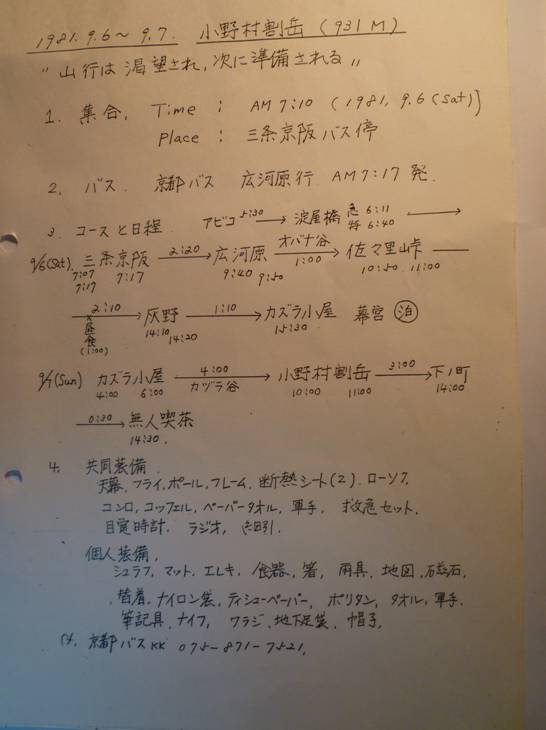 1981. 9.6 ~ 9.7. 小野村割岳 (931M)
"山行は渇望され、次に準備される"
1. 集合. Time : AM 7:10 (1981, 9.6 (Sat))
Place : 三条京阪バス停
2. バス. 京都バス 広河原行 AM 7:17 発.
3. コースと日程 アビコ 5:30 → 淀屋橋 急 6:11 特 6:40 →
9/6(Sat) 三条京阪 2:20 → 広河原 オバナ谷 1:00 → 佐々里峠
7:07 7:17 7:17 9:40 9:50 10:50 11:00
2:10 → 灰野 1:10 → カズラ小屋 幕営 泊
昼食 (1:00) 14:10 14:20 15:30
9/7(Sun) カズラ小屋 4:00 カヅラ谷 → 小野村割岳 3:00 → 下ノ町
4:00 6:00 10:00 11:00 14:00
0:30 → 無人喫茶
14:30.
4. 共同装備.
天幕, フライ, ポール, フレーム, 断熱シート(2). ローソク.
コンロ, コッフェル, ペーパータオル, 軍手, 救急セット.
目覚時計. ラジオ,
個人装備,
シュラフ, マット, エレキ, 食器, 箸, 雨具, 地図, 磁石,
替着, ナイロン袋, ティシューペーパー, ポリタン, タオル, 軍手,
筆記具, ナイフ, ワラジ, 地下足袋, 帽子,
京都バスKK 075-871-7521,